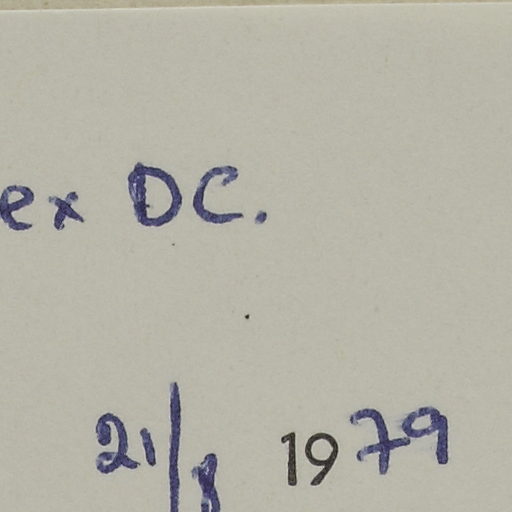 ex DC.
21/8 1979